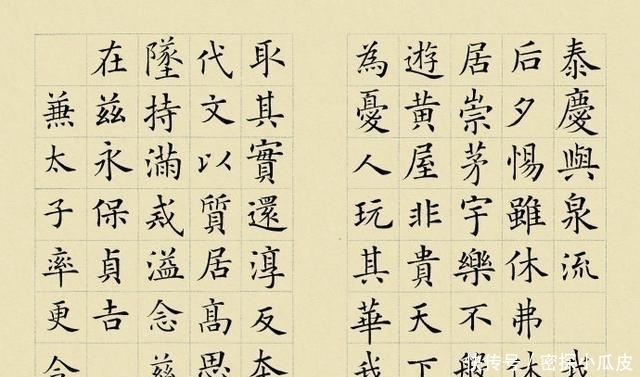 泰慶與泉流 我
后夕惕雖休弗休
居崇茅宇樂不般
遊黃屋非貴天下
為憂人玩其華我
取其實還淳反本
代文以質居高思
墜持滿戒溢念兹
在兹永保貞吉
兼太子率更令
快传号 / 密探小瓜皮